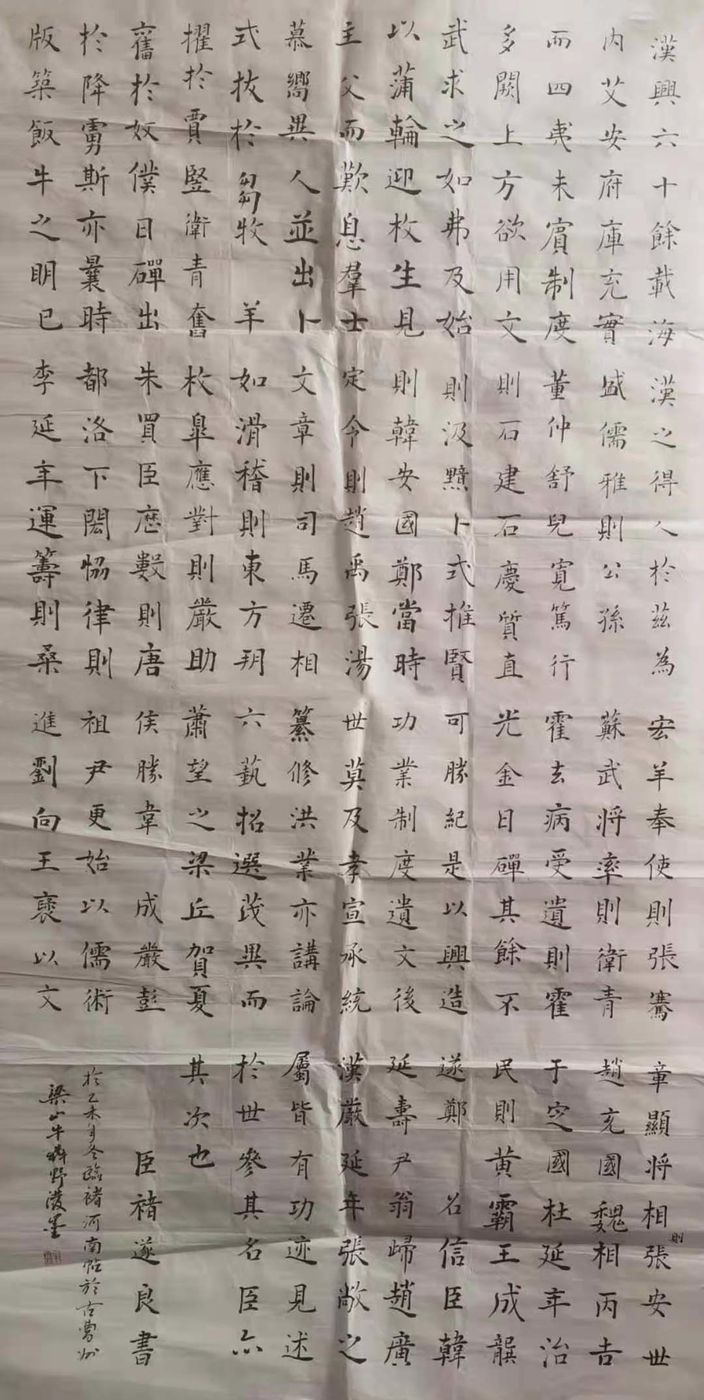 漢興六十餘載海
内艾安府庫充實
而四夷未賓制度
多闕上方欲用文
武求之如弗及始
以蒲輪迎枚生見
主父而歎息羣士
慕嚮異人並出卜
式拔於芻牧 羊
擢於賈豎衛青奮
舊於奴僕日磾出
於降虜斯亦曩時
版築飯牛之明已
漢之得人於茲為
盛儒雅則公孫
董仲舒兒寬篤行
則石建石慶質直
則汲黯卜式推賢
則韓安國鄭當時
定令則趙禹張湯
文章則司馬遷相
如滑稽則東方朔
枚皐應對則嚴助
朱買臣厯數則唐
都洛下閎恊律則
李延年運籌則桑
宏羊奉使則張騫
蘇武將率則衛青
霍去病受遺則霍
光金日磾其餘不
可勝紀是以興造
功業制度遺文後
世莫及孝宣承統
纂修洪業亦講論
六藝招選茂異而
蕭望之梁丘賀夏
侯勝韋 成嚴彭
祖尹更始以儒術
進劉向王襃以文
章顯將相則張安世
趙充國魏相丙吉
于定國杜延年治
民則黄霸王成龔
遂鄭 名信臣韓
延壽尹翁歸趙廣
漢嚴延年張敞之
屬皆有功迹見述
於世參其名臣亦
其次也
臣褚遂良書
於乙未年冬臨褚河南帖於古曹州
梁山牛 野漫墨